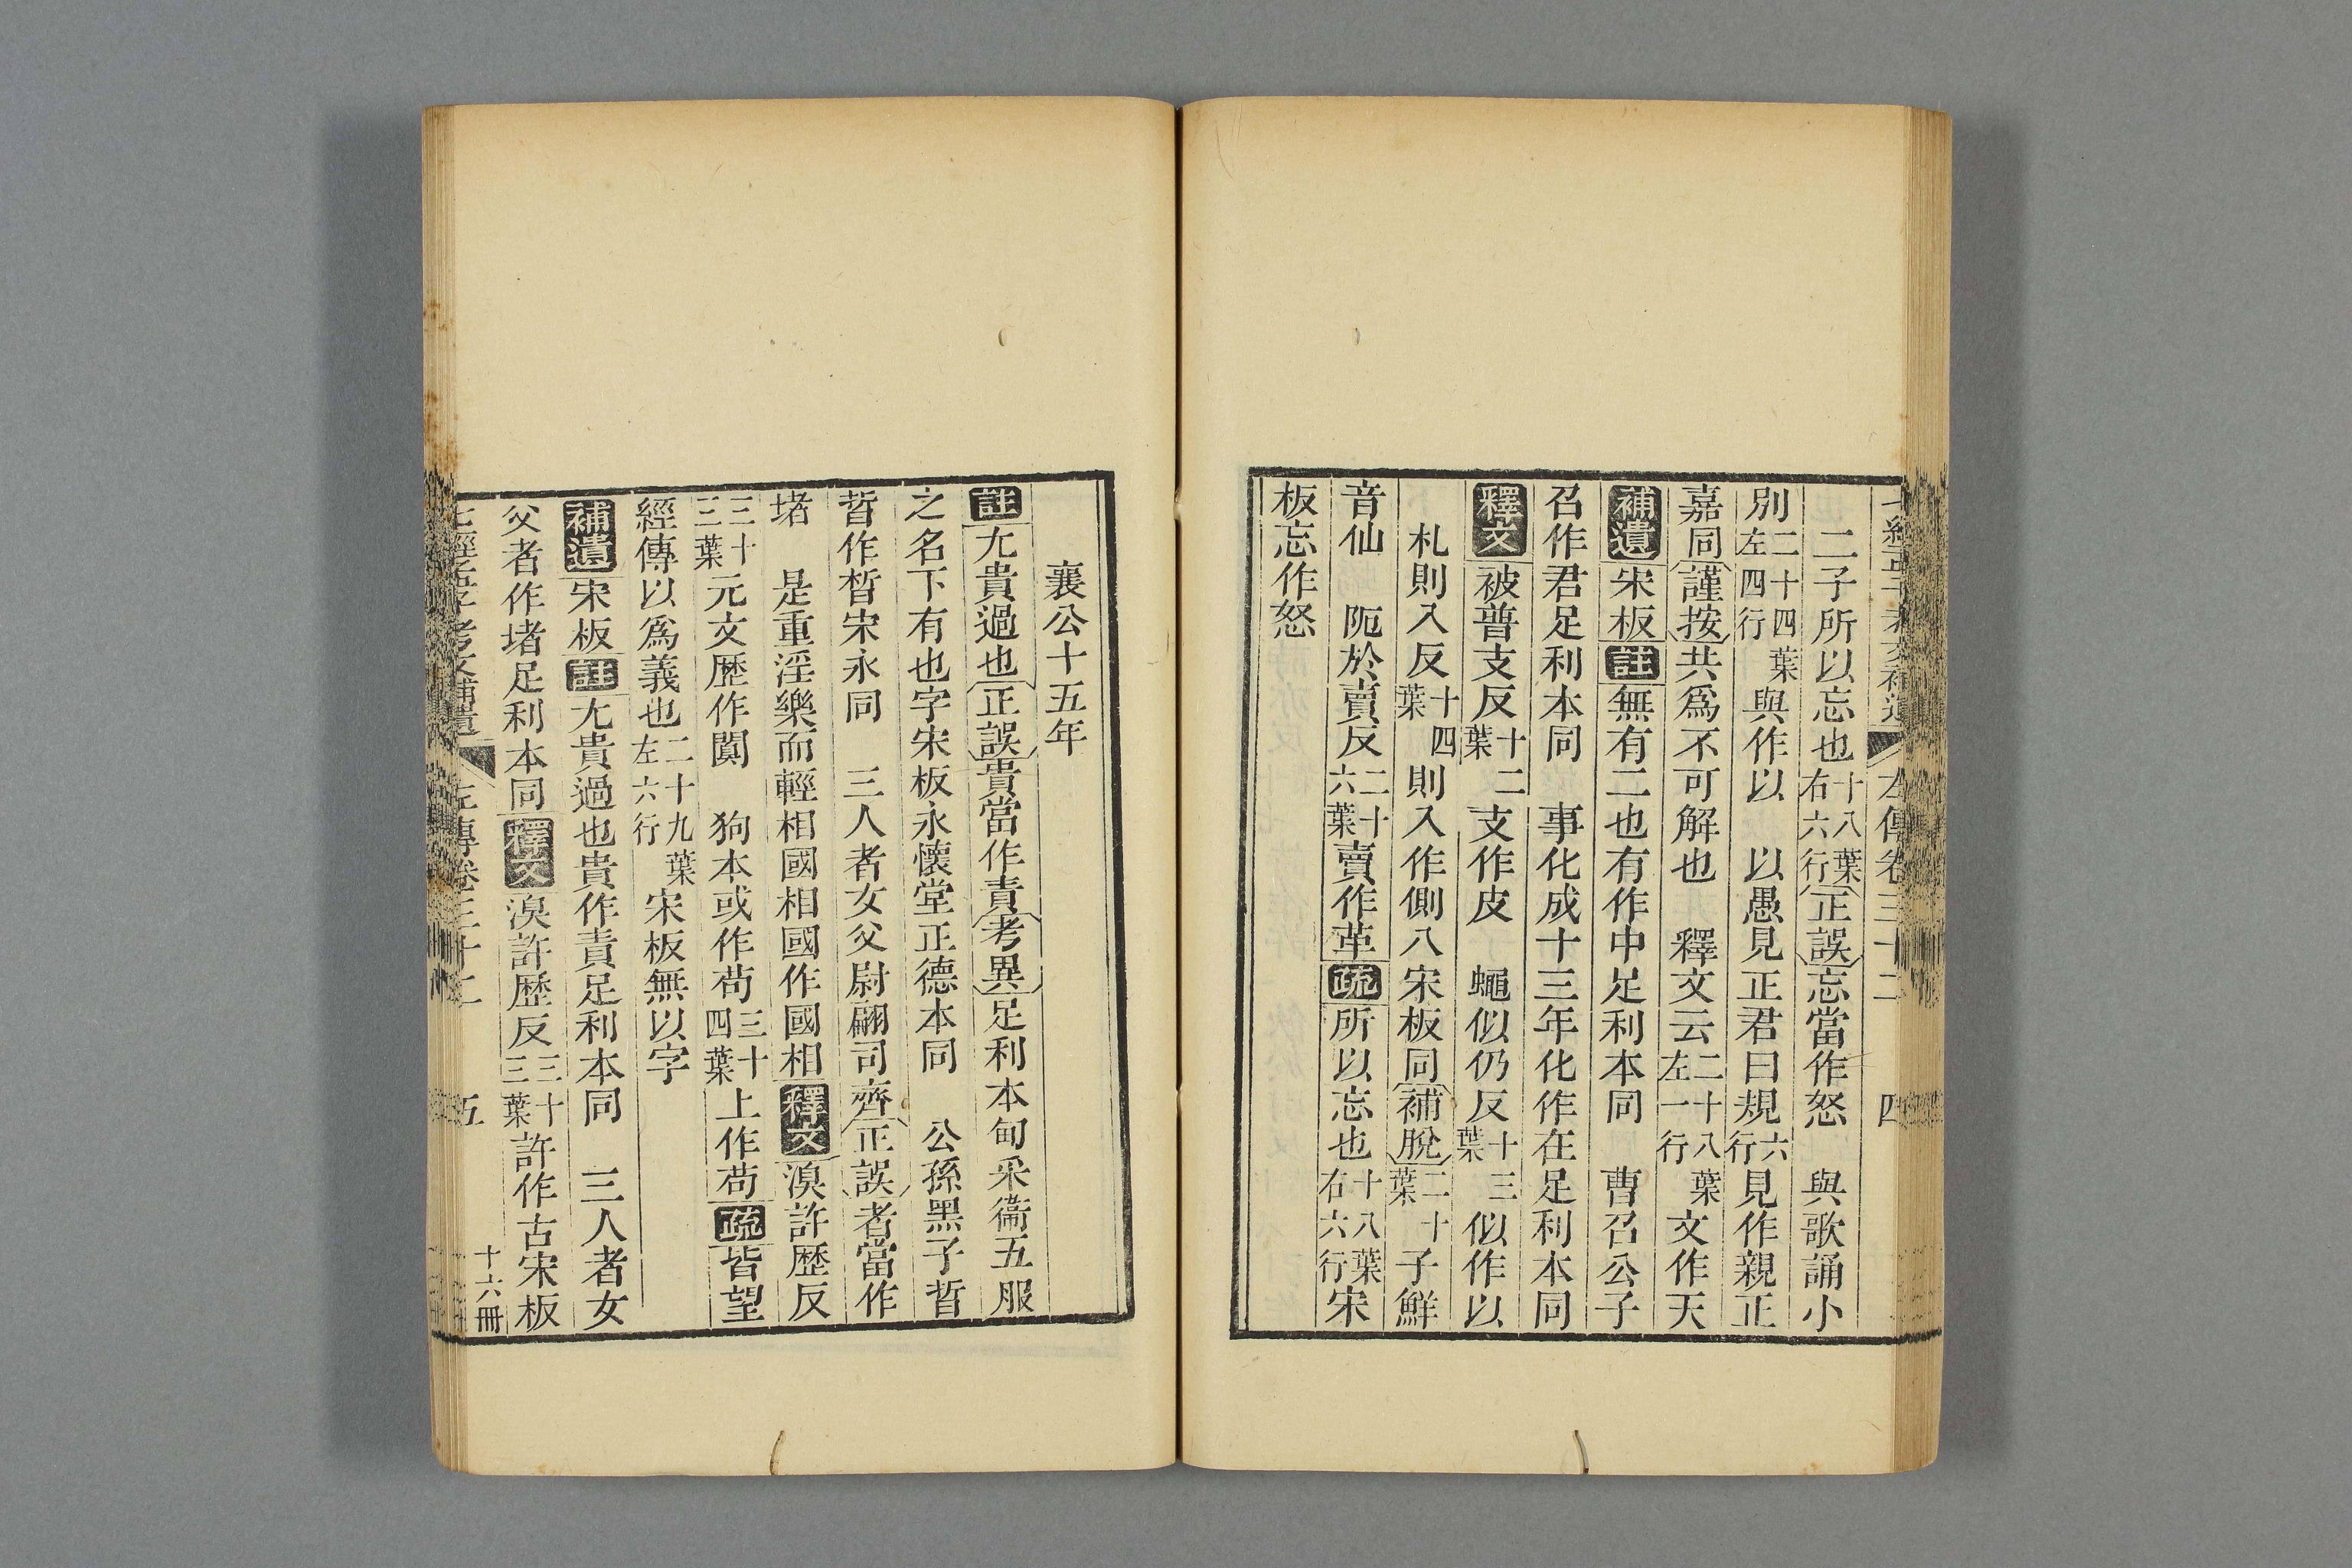 二子所以忘也十八葉右六行正誤忘當作怒　與歌誦小
別二十四葉左四行與作以　以愚見正君曰規六行見作親正
嘉同謹按共爲不可解也　釋文云二十八葉左一行文作天
補遺宋板註無有二也有作中足利本同　曹召公子
召作君足利本同　事化成十三年化作在足利本同
釋文被普支反十二葉支作皮　蠅似仍反十三葉似作以
札則入反十四葉則入作側八宋板同補脫二十葉子鮮
音仙　阨於賣反二十六葉賣作革疏所以忘也十八葉右六行宋
板忘作怒
襄公十五年
註尤貴過也正誤貴當作責考異足利本甸采衞五服
之名下有也字宋板永懷堂正德本同　公孫黑子晳
晳作晢宋永同　三人者女父尉翩司齊正誤者當作
堵　是重淫樂而輕相國相國作國相釋文湨許歷反
三十三葉元文歷作闃　狗本或作苟三十四葉上作苟疏皆望
經傳以爲義也二十九葉左六行宋板無以字
補遺宋板註尤貴過也貴作責足利本同　三人者女
父者作堵足利本同釋文湨許歷反三十三葉許作古宋板
十六冊